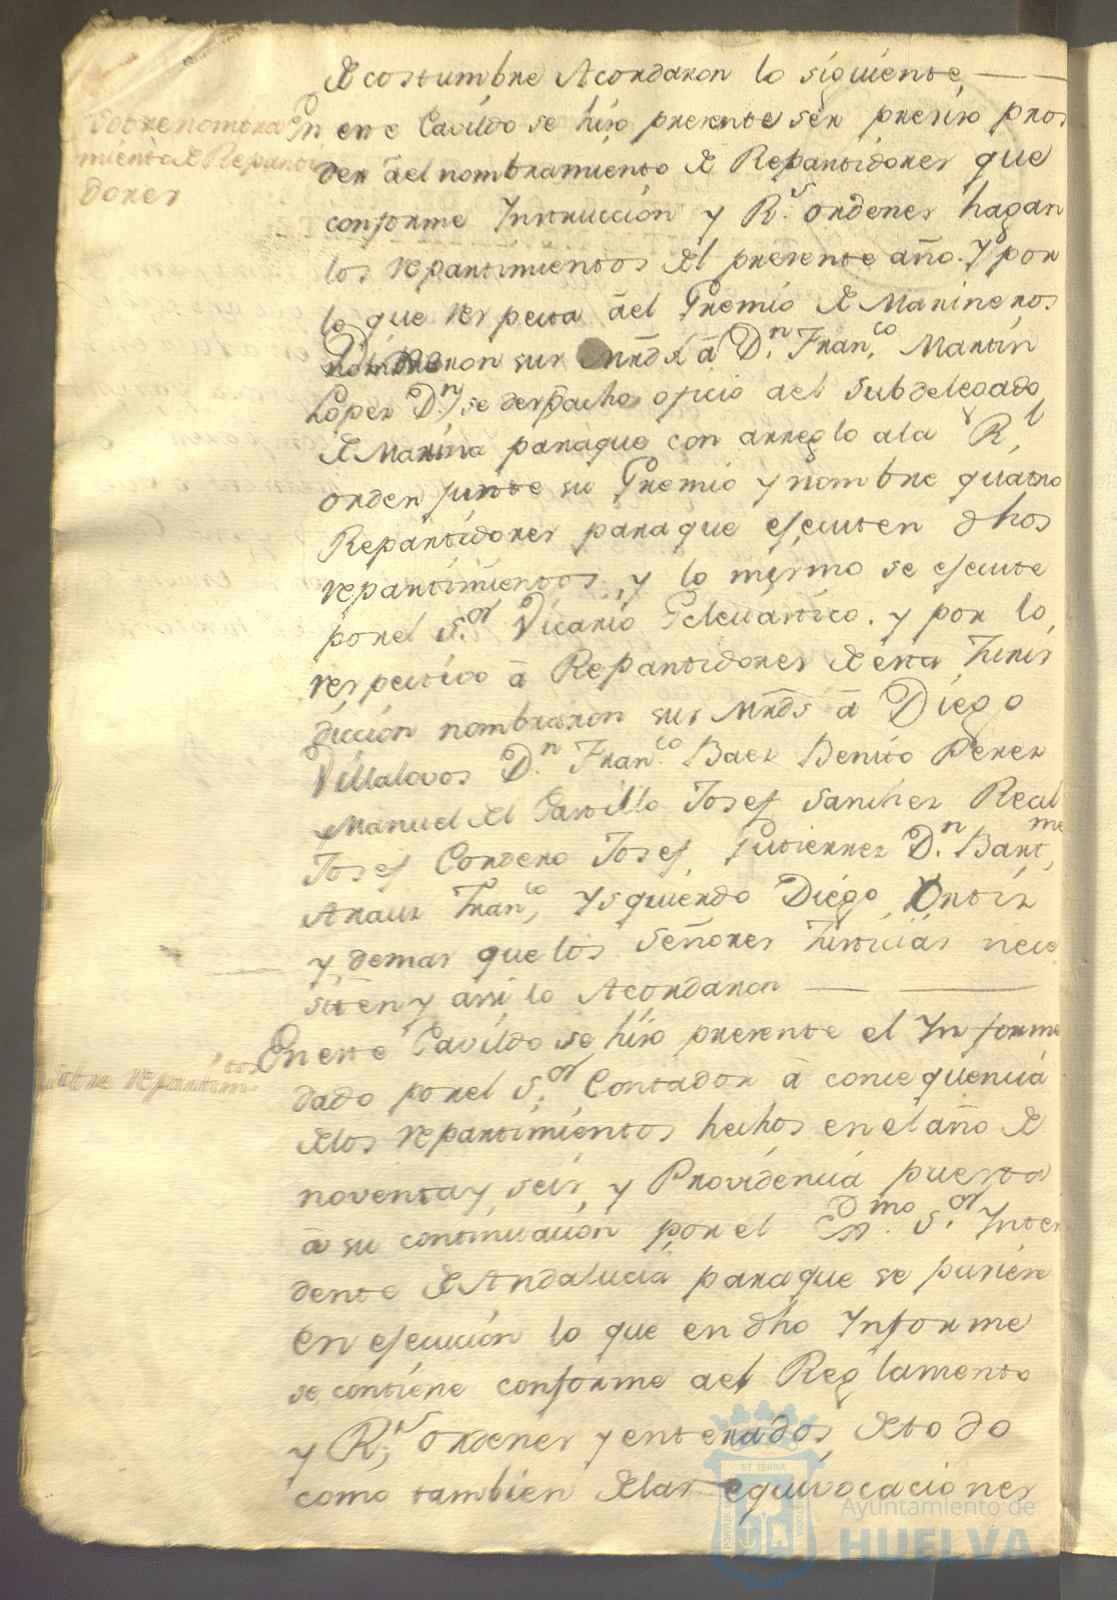 de costumbre Acordaron lo siguiente
Sobre nombra
miento de Reparti
dores
En este Cavildo se hiso presente ser presiso pros
der âel nombramiento de Repartidores que
conforme Instruccion y R.s ordenes hagan
los repartimientos del presente año. Y por
lo que respecta âel Gremio de Marineros
nombraron sus mrds â D.n Fran.co Martin
Lopez D.n y se despacho oficio ael Subdelegado
de Marina paraque con arreglo ala R.l
orden junte su Gremio y nombre quatro
Repartidores paraque ejecuten dhos
repartimientos, y lo mismo se ejecute
porel S.or Vicario Eclesiastico. y por lo
respectivo â Repartidores de esta Juris
diccion nombraron sus Mrds â Diego
Villalovos D.n Fran.co Baez Benito Perez
Manuel del Castillo Josef Sanchez Real
Josef Cordero Josef Gutierrez D.n Bart.me
Arauz Fran.co Ysquierdo Diego Ortiz
y demas que los Señores Justicias nece
siten y assi lo Acordaron
Sobre repartim.tos
En este Cavildo se hiso presente el Informe
dado porel S.or Contador â consequencia
delos repartimientos hechos en el año de
noventa y seis, y Providencia puesta
â su continuacion por el S.or Inten
dente de Andalucia paraque se pusiese
en ejecucion lo que en dho Informe
se contiene conforme ael Reglamento
y R.s ordenes y enterados de todo
como tambien delas equivocaciones
Ayuntamiento de
HUELVA